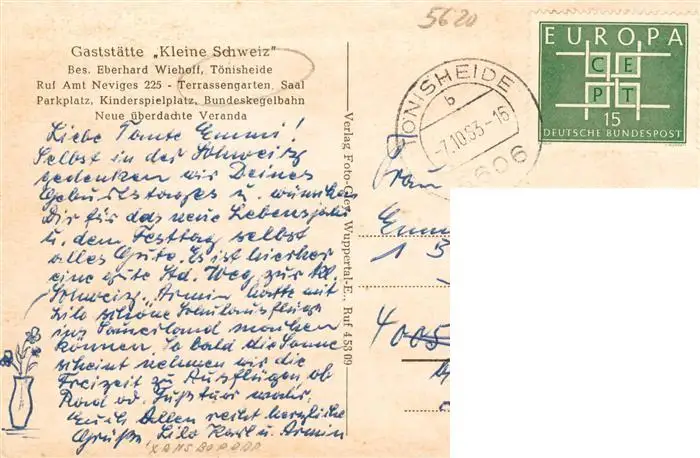 5620
Gaststätte „Kleine Schweiz"
Bes. Eberhard Wiehoff, Tönisheide
Ruf Amt Neviges 225 - Terrassengarten, Saal
Parkplatz, Kinderspielplatz, Bundeskegelbahn
Neue überdachte Veranda
Liebe Tante Emmi!
Selbst in der Schweitz
gedenken wir Deines
Geburtstages u. wünschen
Dir für das neue Lebensjahr
u. dem Festtag selbst
alles Gute. Es ist hierher
eine gute Std. Weg zur kl.
Schweitz. Armin hatte mit
Lilo schöne Schulausflüge
ins Sauerland machen
können. So bald die Sonne
scheint nehmen wir die
Freizeit zu Ausflügen ob
Rad od. Fußtour wahr.
Euch Allen recht herzliche
Grüße, Lilo Karl u. Armin
Verlag Foto-Grev, Wuppertal-E., Ruf 45309
TÖNISHEIDE
b
-7.10.63-16
5606
EUROPA
CEPT
15
DEUTSCHE BUNDESPOST
Frau
Emmi
1
4005